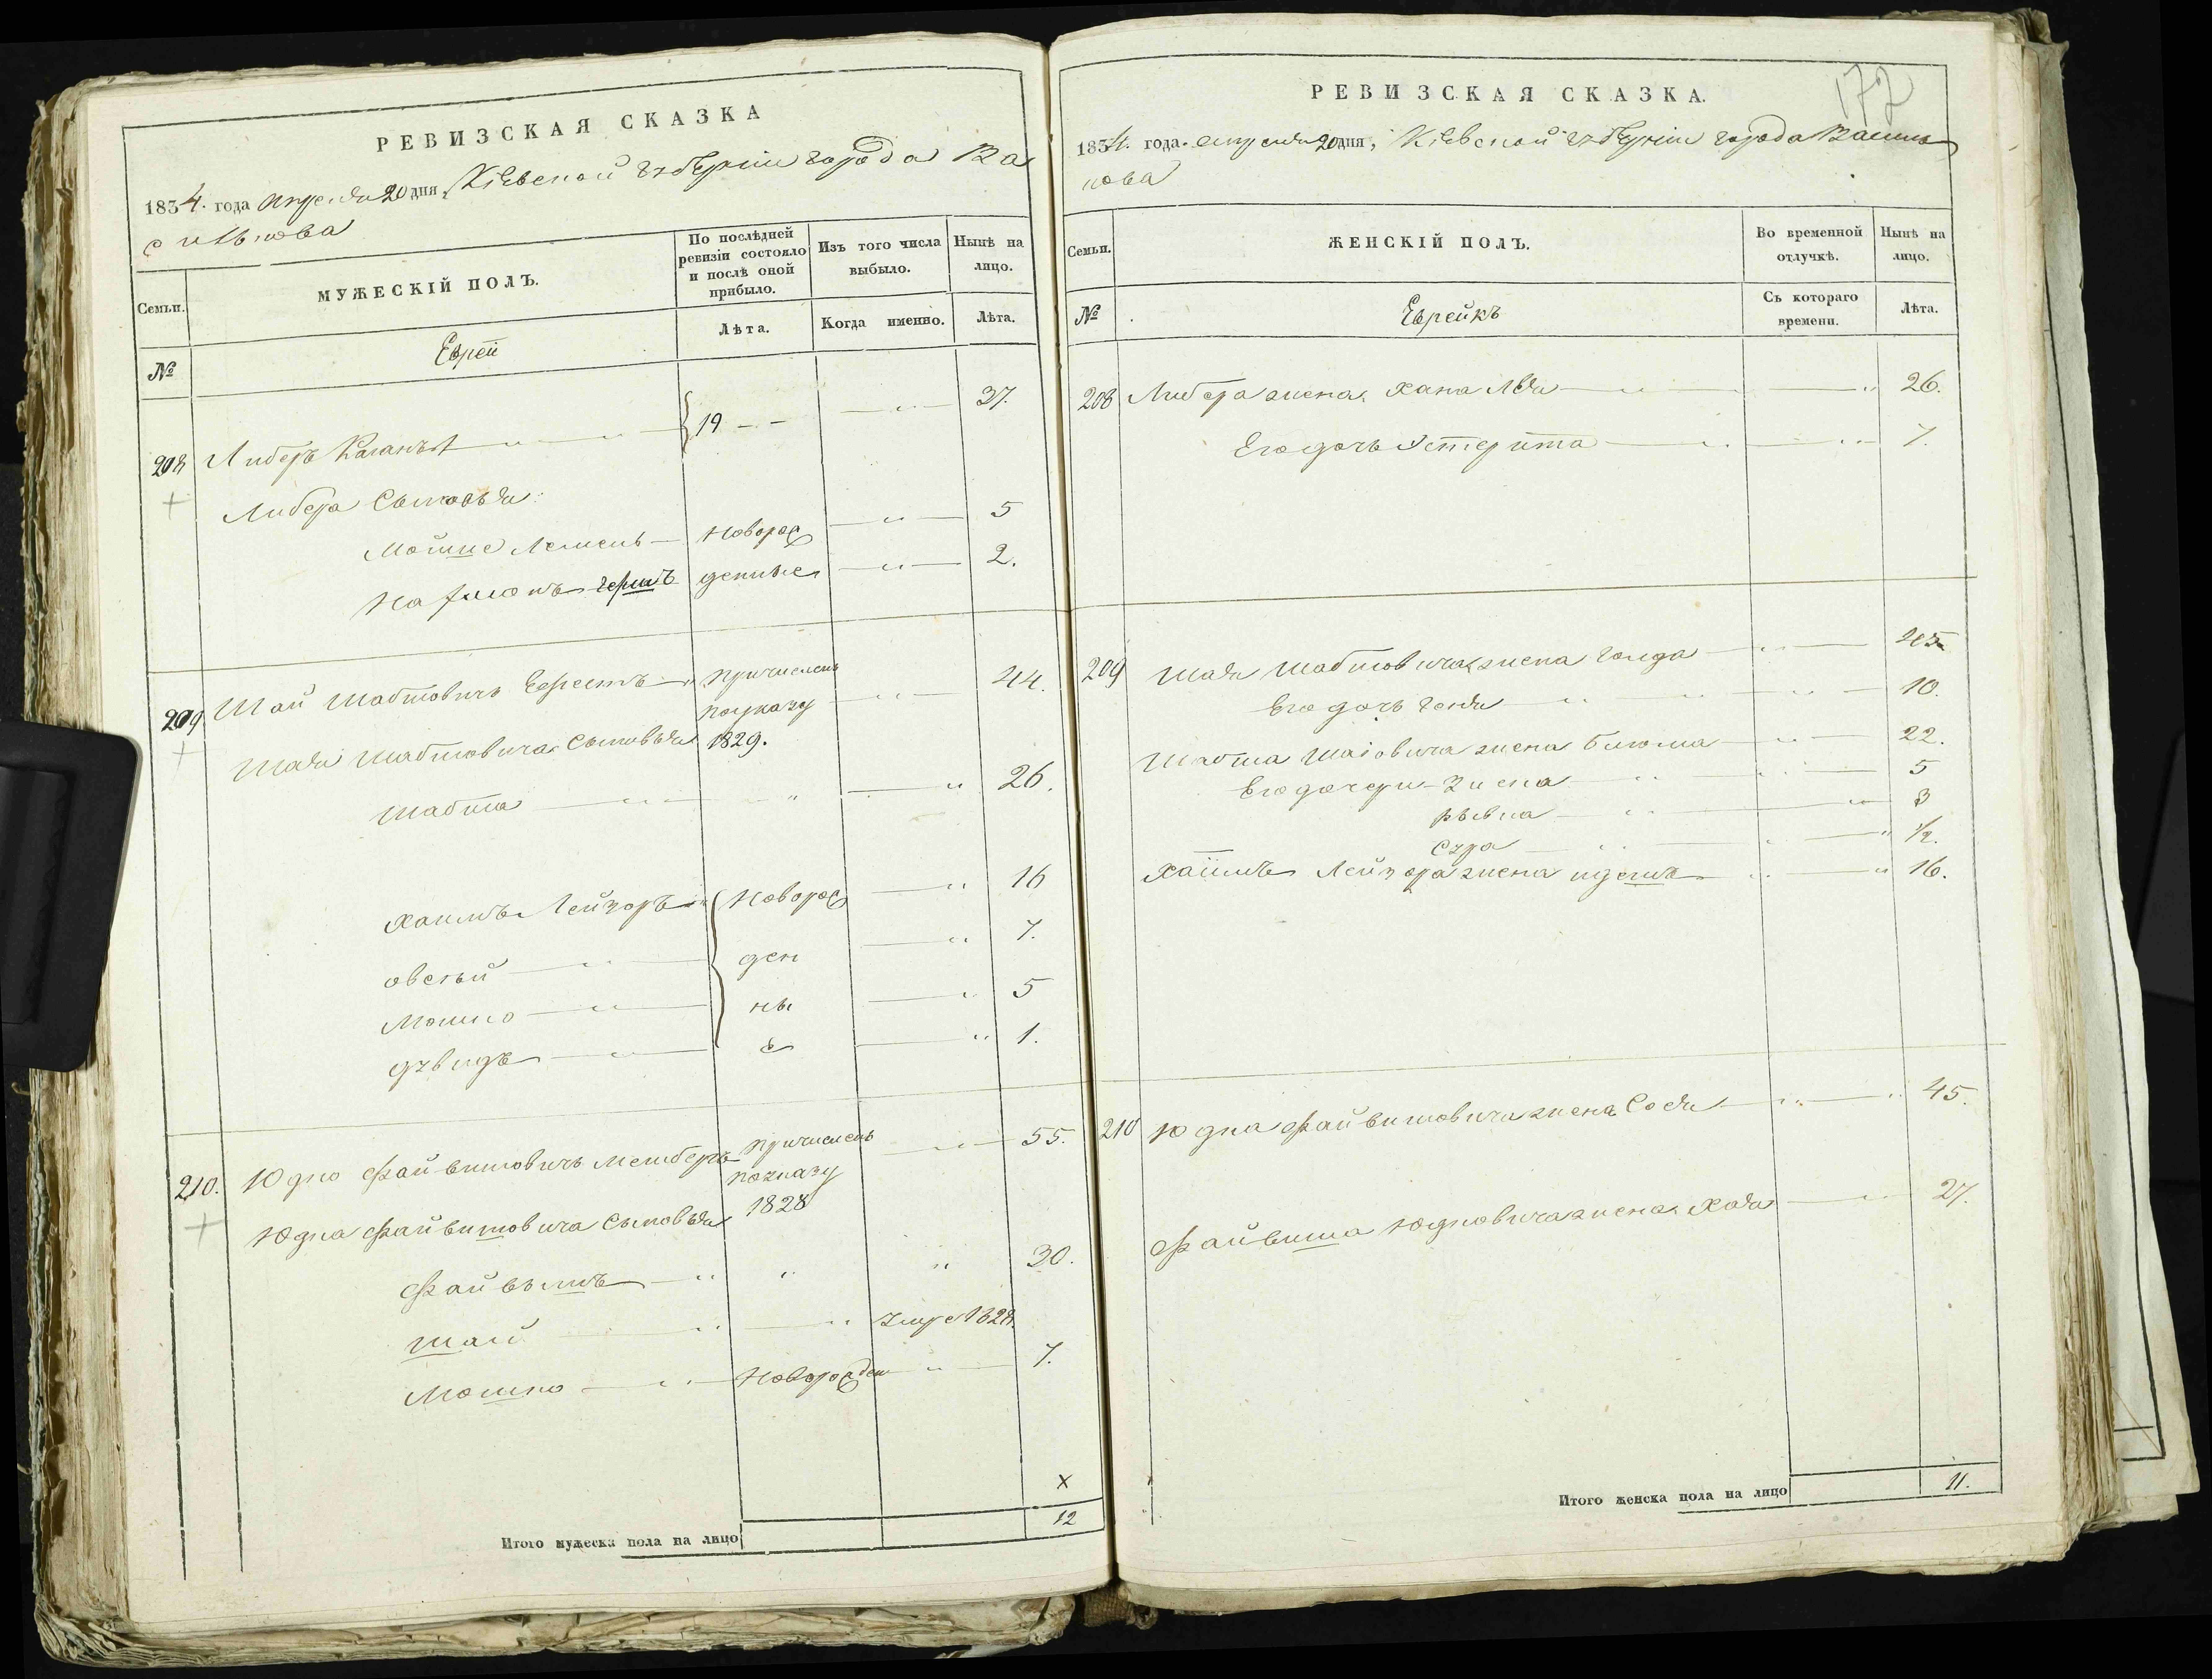 РЕВИЗСКАЯ СКАЗКА
1834. года апреля 20 дня, Кіевской губерніи города Ва
силькова
Семьи.
МУЖЕСКІЙ ПОЛЪ.
По послѣдней ревизіи состояло и послѣ оной прибыло.
Изъ того числа выбыло.
Нынѣ на лицо.
№
Еврей
Лѣта.
Когда именно.
Лѣта.
208 Либеръ Каганъ 19 37.
Либера Сыновья:
Мошке Лемель Новорож 5
Нахмонъ гершъ денные 2.
209 Шая Шабтовичъ Причисленъ 44.
поуказу
Шаи Шабтовича Сыновья 1829.
Шабта 26.
Хаимъ Лейзоръ Новорож 16
овсѣй ден 7.
Мошко ны 5
дувидъ е 1.
210. Юдко Файвишовичъ Причисленъ 55.
поуказу
Юдка Файвишовича Сыновья 1828
Файвышъ 30.
Шая умре 1828.
Мошко Новорожден 7.
х
Итого мужеска пола на лицо 12
172
РЕВИЗСКАЯ СКАЗКА.
1834. года апреля 20 дня, Кіевской губерніи города Василь
кова
Семьи.
ЖЕНСКІЙ ПОЛЪ.
Во временной отлучкѣ.
Нынѣ на лицо.
№
Еврейкъ
Съ котораго времени.
Лѣта.
208 Либера жена Хана Лея 26.
Его дочь Эстер ита 7.
209 Шаи Шабтовича жена голда 45
Его дочь геня 10.
Шабта Шаіовича жена Блюма 22.
Его дочери Зисла 5
рывка 3
Сура 1/2.
Хаіимъ Лейзора жена 16.
210 Юдка Файвишовича жена Сося 45.
Файвиша Юдковича жена Хая 27.
Итого женска пола на лицо 11.